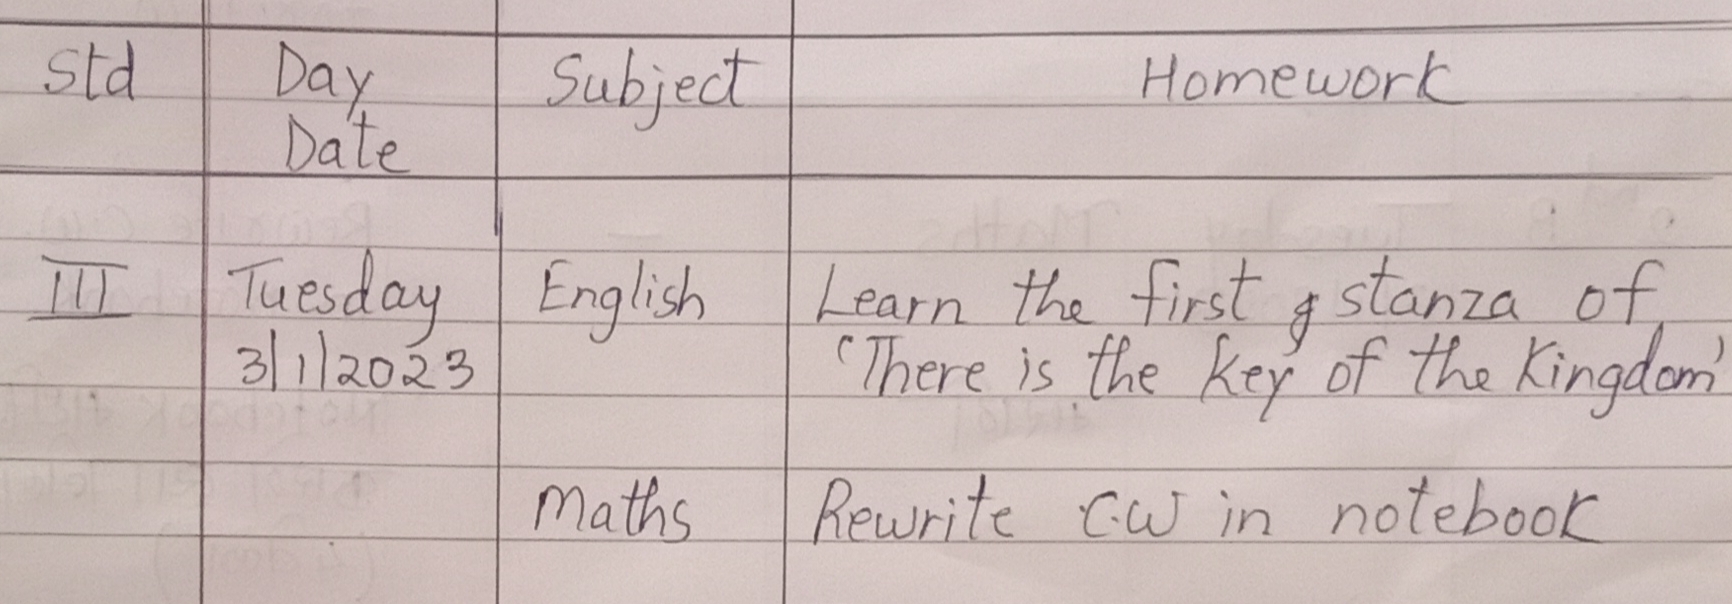 Std Day Subject Homework
Date
III Tuesday English Learn the first stanza of
3/1/2023 'There is the key of the Kingdom'
Maths Rewrite C.W in notebook